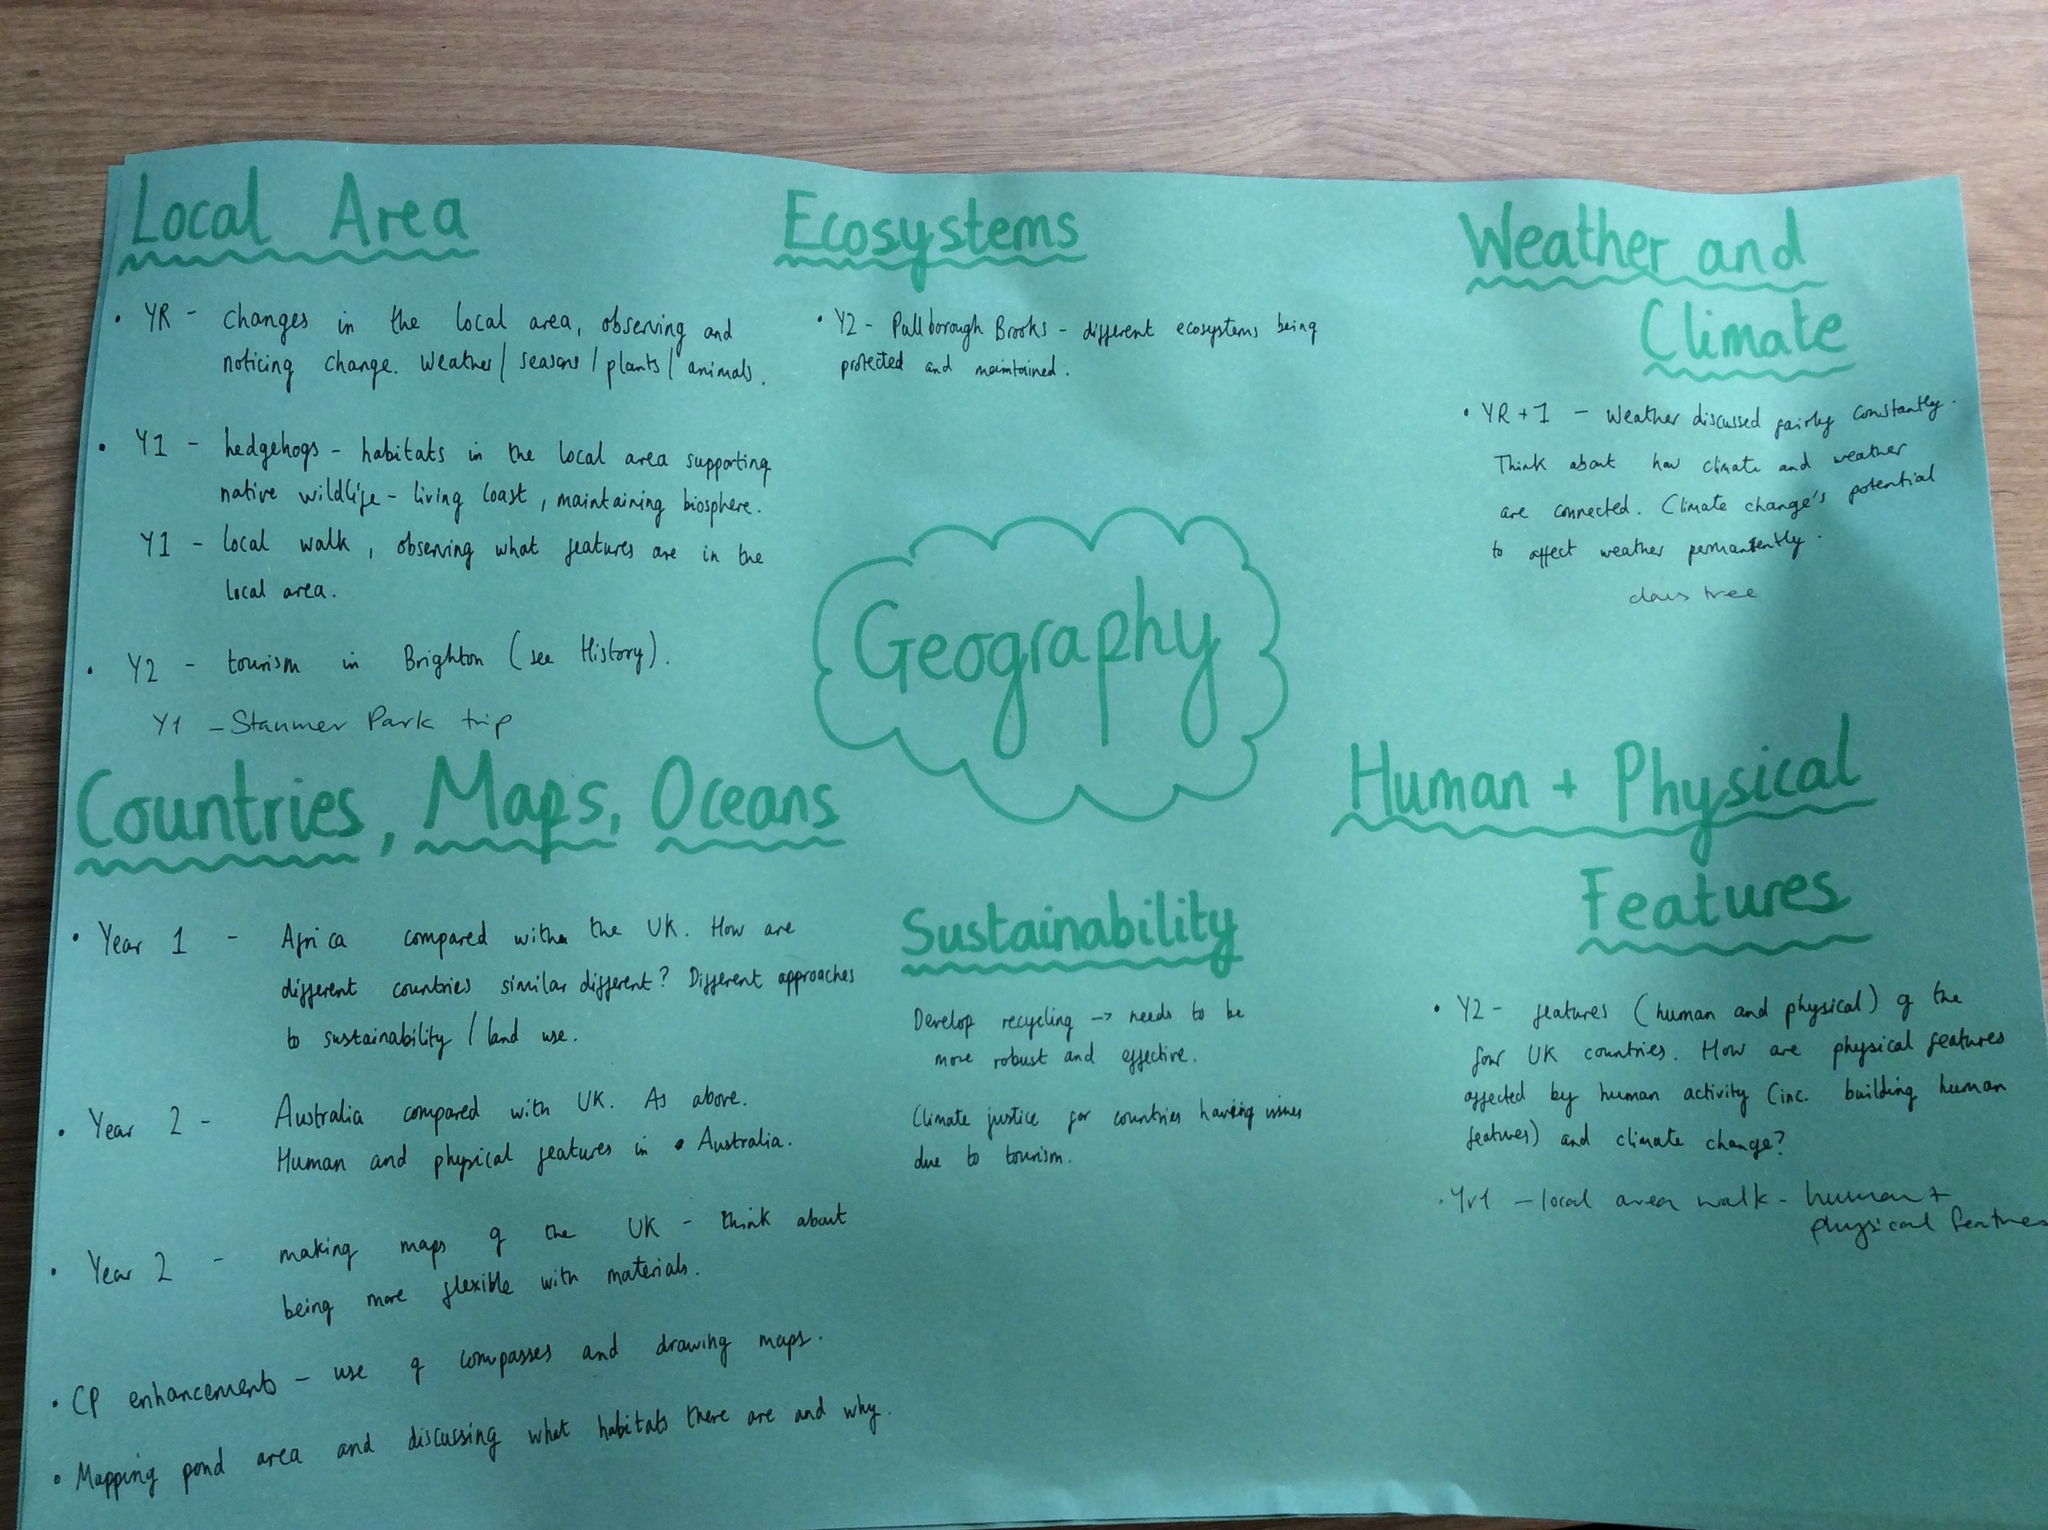 Local Area
• YR - changes in the local area, observing and
noticing change. Weather/ seasons/ plants/ animals.
• Y1 - hedgehogs - habitats in the local area supporting
native wildlife - living coast, maintaining biosphere.
Y1 - local walk, observing what features are in the
local area.
• Y2 - tourism in Brighton (see History).
Y1 - Stanmer Park trip
Ecosystems
• Y2 - Pullborough Brooks - different ecosystems being
protected and maintained.
Weather and
Climate
• YR + 1 - Weather discussed fairly constantly.
Think about how climate and weather
are connected. Climate change's potential
to affect weather permanently.
class tree
Geography
Countries, Maps, Oceans
• Year 1 - Africa compared with the UK. How are
different countries similar different? Different approaches
to sustainability / land use.
• Year 2 - Australia compared with UK. As above.
Human and physical features in Australia.
• Year 2 - making maps of the UK - think about
being more flexible with materials.
• CP enhancements - use of compasses and drawing maps.
• Mapping pond area and discussing what habitats there are and why.
Sustainability
Develop recycling -> needs to be
more robust and effective.
Climate justice for countries having issues
due to tourism.
Human + Physical
Features
• Y2 - features (human and physical) of the
four UK countries. How are physical features
affected by human activity (inc. building human
features) and climate change?
• Yr1 - local area walk - human +
physical features